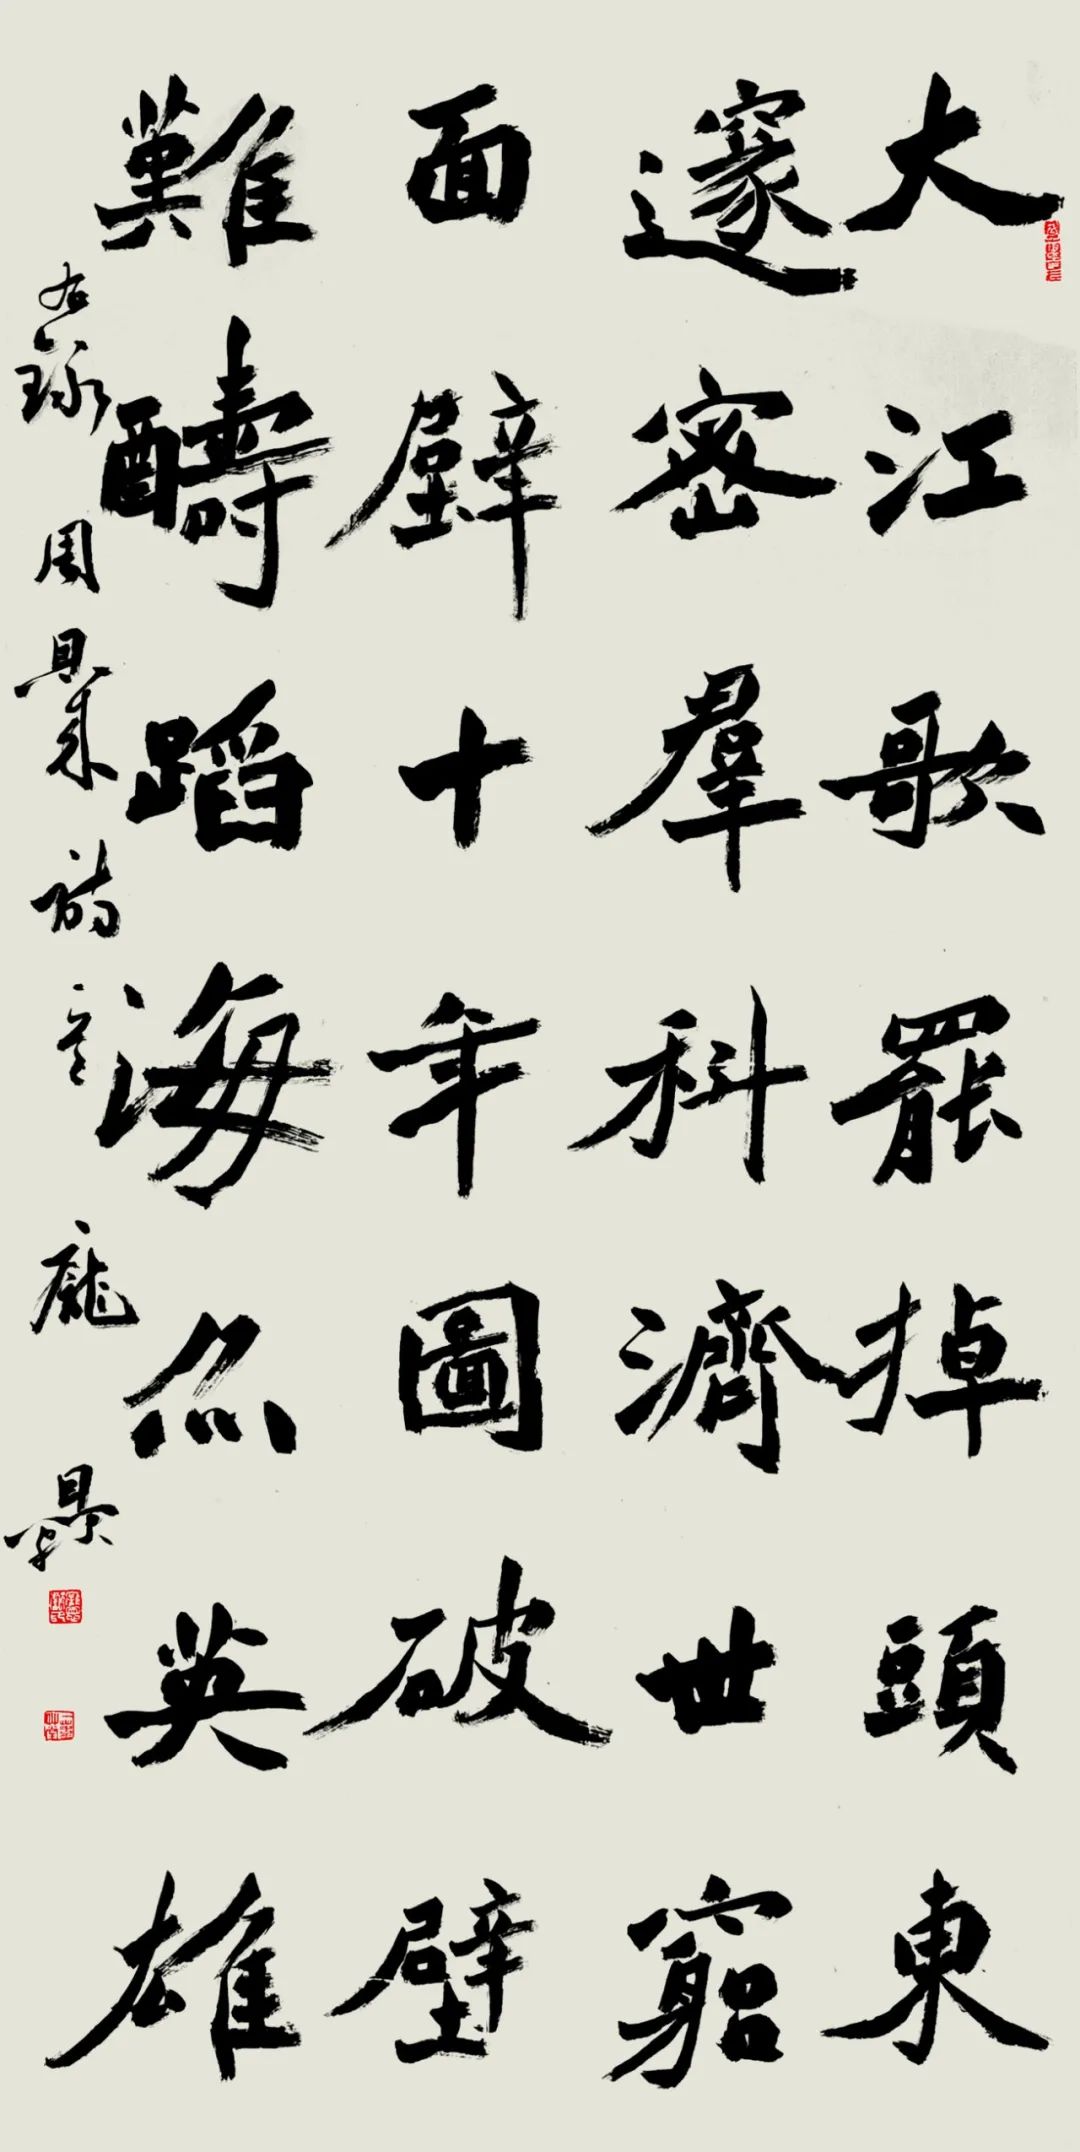 大江歌罷掉頭東
邃密羣科濟世竆
面壁十年圖破壁
難醻蹈海亦英雄
右録周恩来詩一首 龐